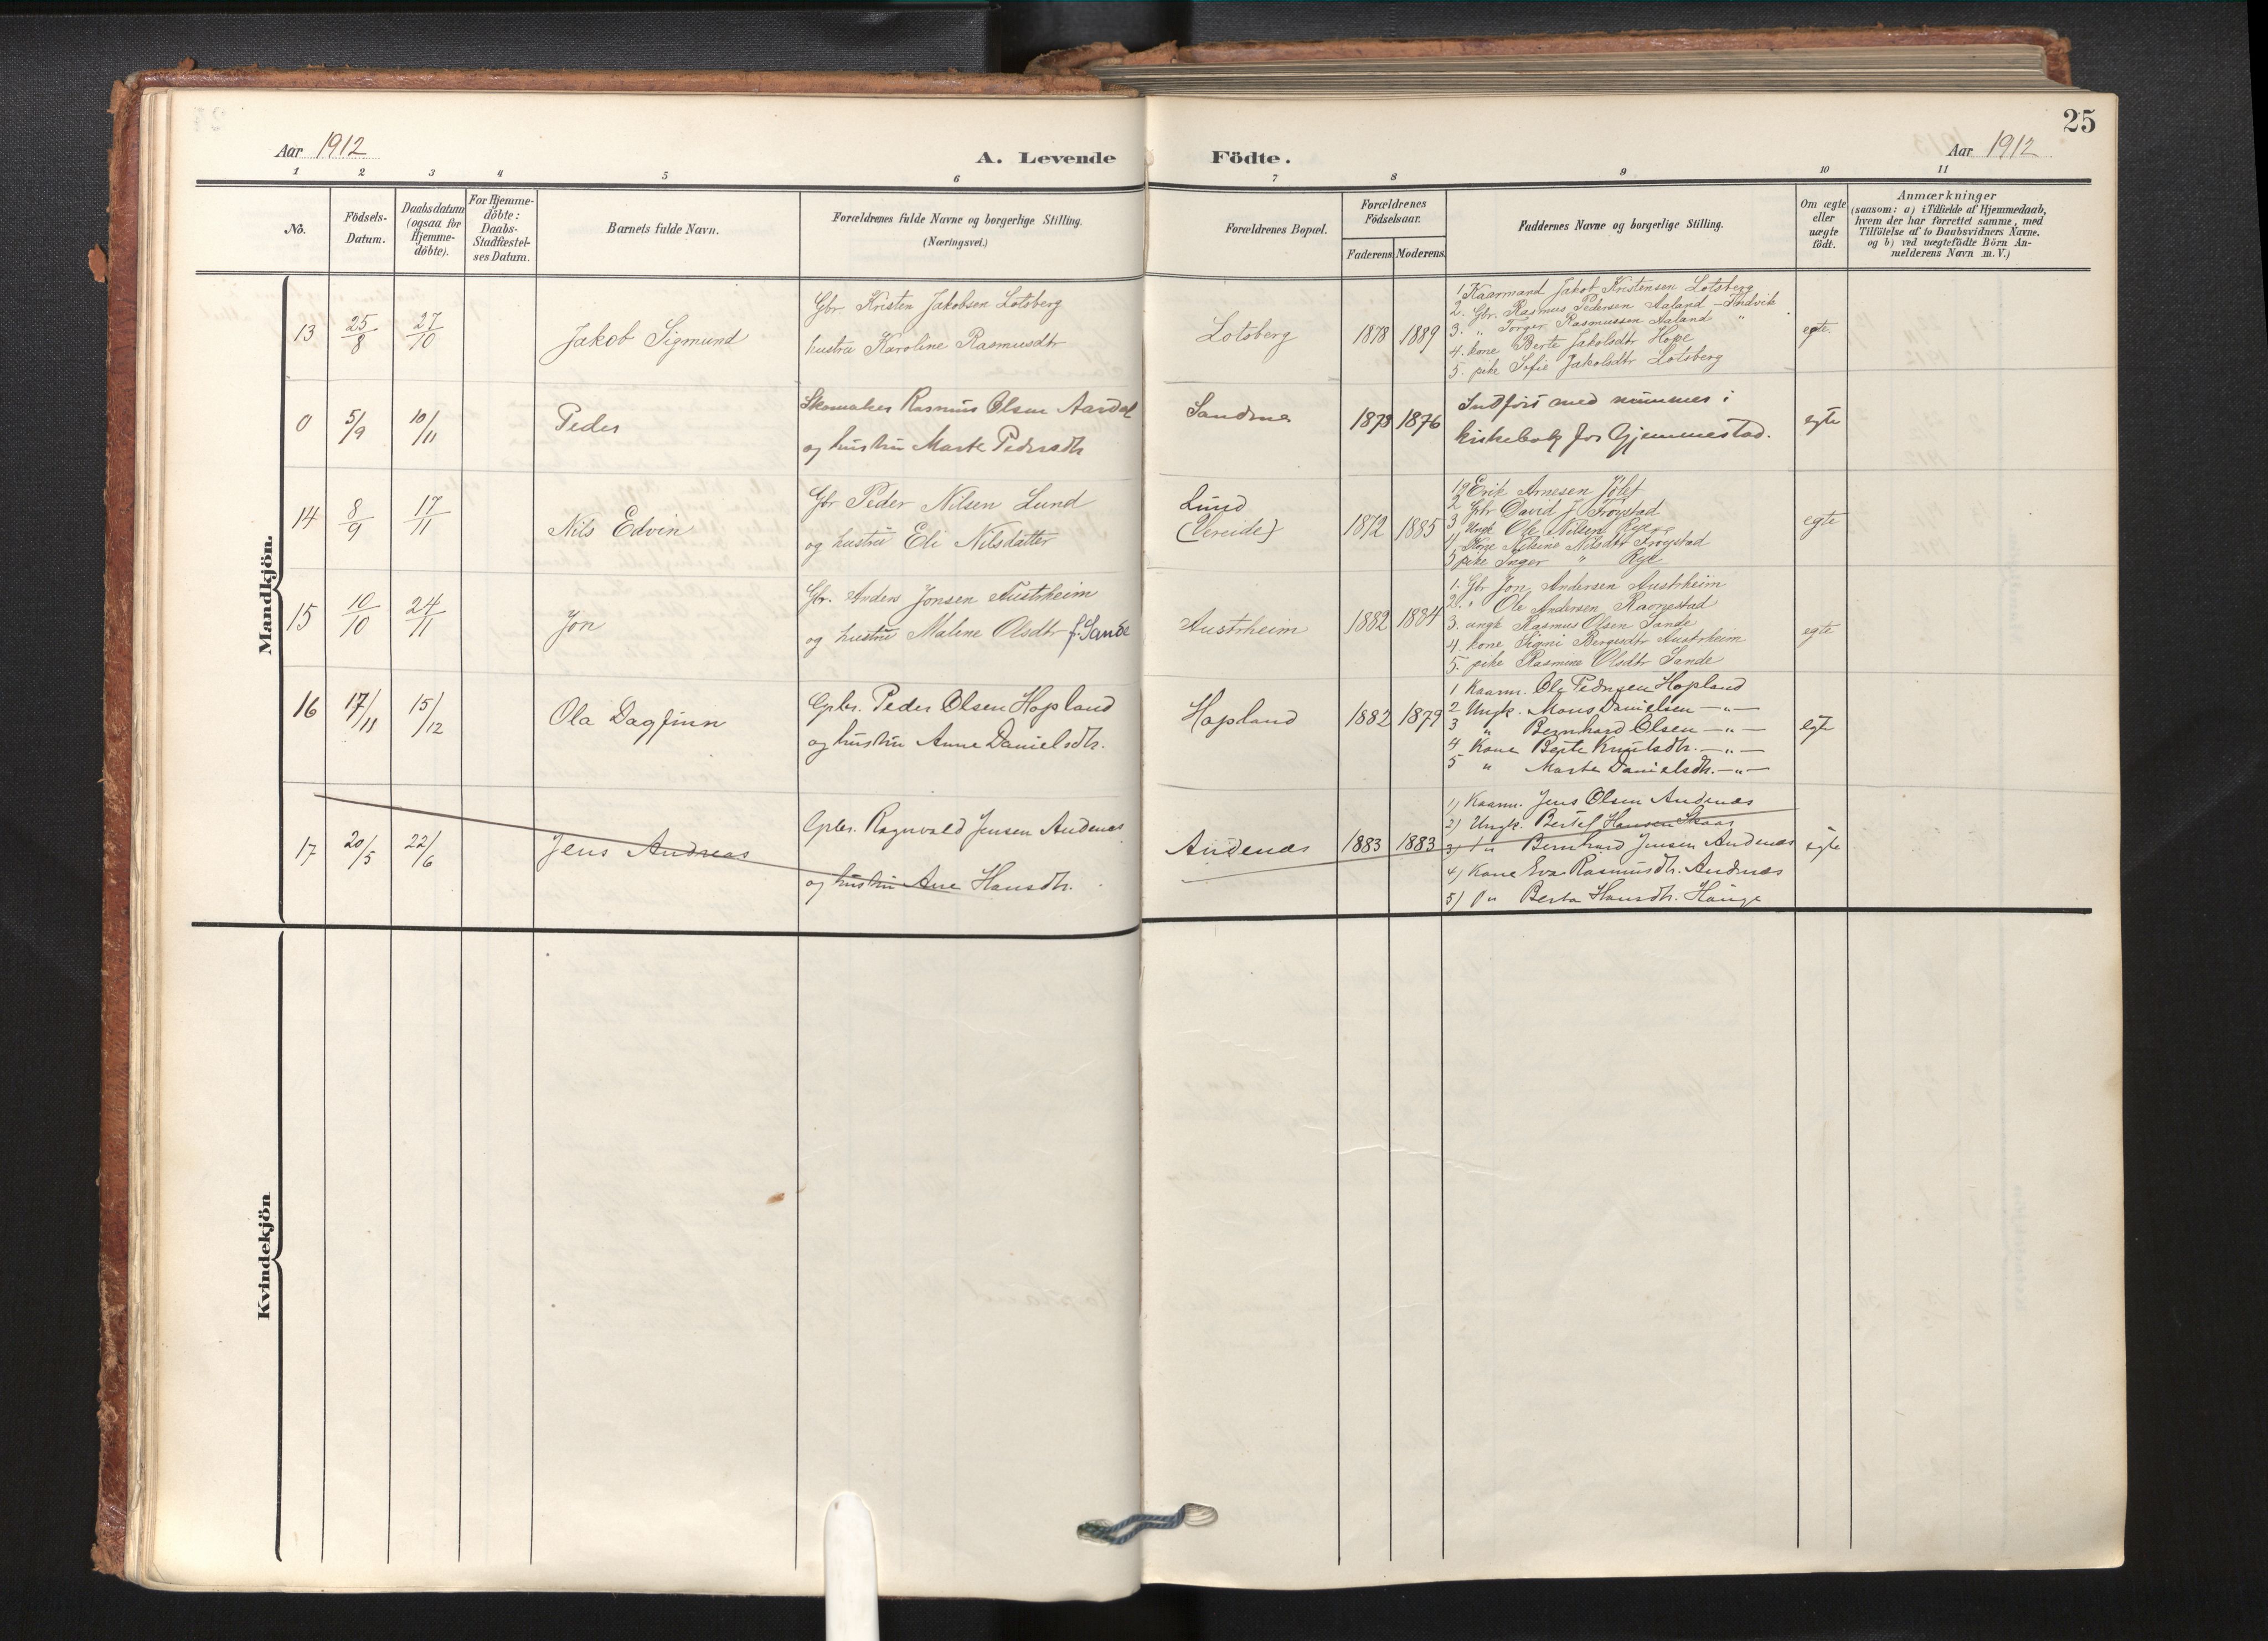 25
Aar 1912
A. Levende Födte.
Aar 1912
1 2 3 4 5 6 7 8 9 10 11
No.
Födsels-
Datum.
Daabsdatum
(ogsaa for
Hjemme-
döbte).
For Hjemme-
döbte:
Daabs-
Stadfæstel-
ses Datum.
Barnets fulde Navn.
Forældrenes fulde Navne og borgerlige Stilling.
(Næringsvei.)
Forældrenes Bopæl.
Forældrenes
Födselsaar.
Faderens. Moderens.
Faddernes Navne og borgerlige Stilling.
Om ægte
eller
uægte
födt.
Anmærkninger
(saasom: a) i Tilfælde af Hjemmedaab,
hvem der har forrettet samme, med
Tilföielse af to Daabsvidners Navne.
og b) ved uægtefödte Börn An-
melderens Navn m. V.)
Mandkjön.
13 25/8 27/10 Jakob Sigmund
Gbr Kristen Jakobsen Lotsberg
hustru Karoline Rasmusdtr
Lotsberg 1878 1889
1. Kaarmand Jakob Kristensen Lotsberg
2. Gbr. Rasmus Pedersen Aaland - Indvik
3. " Torger Rasmussen Aaland "
4. kone Berte Jakobsdtr Hope
5. pike Sofie Jakobsdtr Lotsberg
egte.
0 5/9 10/11 Peder
Skomaker Rasmus Olsen Aardal
og hustru Marte Pedersdtr
Sandnes 1878 1876
Indfört med nummer i
kirkebok for Gjemmestad.
egte
14 8/9 17/11 Nils Edvin
Gbr Peder Nilsen Lund
og hustru Eli Nilsdatter
Lund
(Vereide)
1872 1885
Erik Arnesen
2 Gbr David J Fröystad
3 Ungk Ole Nilsen Rygg
4 Kone Nilsine Nilsdtr Fröystad
5 pike Inger " Rygg
egte
15 10/10 24/11 Jon
Gbr. Anders Jonsen Austrheim
og hustru Malene Olsdtr f. Sande
Austrheim 1882 1884
1. Gbr Jon Andersen Austrheim
2. " Ole Andersen Ramestad
3. ungk Rasmus Olsen Sande
4. kone Signi Bergesdtr Austrheim
5. pike Rasmine Olsdtr Sande
egte
16 17/11 15/12 Ola Dagfinn
Gpbr. Peder Olsen Hopland
og hustru Anne Danielsdtr.
Hopland 1882 1879
1 Kaarm. Ole Pedersen Hopland
2 Ungk. Mons Danielsen —"—
3 " Bernhard Olsen —"—
4 Kone Berte Knutsdtr. —"—
5 " Marte Danielsdtr. —"—
egte
17 20/5 22/6 Jens Andreas
Gpbr. Ragnvald Jensen Andenæs
og hustru Ane Hansdtr.
Andenæs 1883 1883
1) Kaarm. Jens Olsen Andenæs
2) Ungk. Bertel Hansen Skaar
3) Bernhard Jensen Andenæs
4) Kone Eva Rasmusdtr. Andenæs
5) Berta Hansdtr. Hauge
egte
Kvindekjön